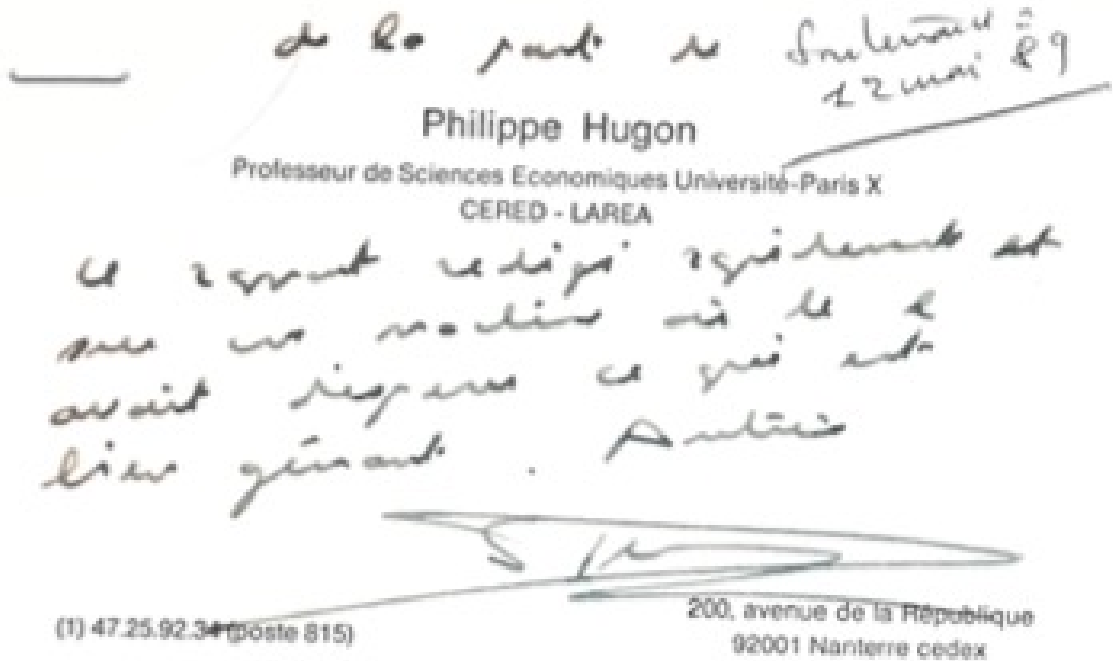 de la part de Soutenance
12 mai 89
Philippe Hugon
Professeur de Sciences Economiques Université-Paris X
CERED - LAREA
Ce rapport rédigé rapidement et
sur une machine où le e
avait disparu ce qui est
bien gênant. Amitiés
(1) 47.25.92.34 (poste 815)
200, avenue de la République
92001 Nanterre cedex